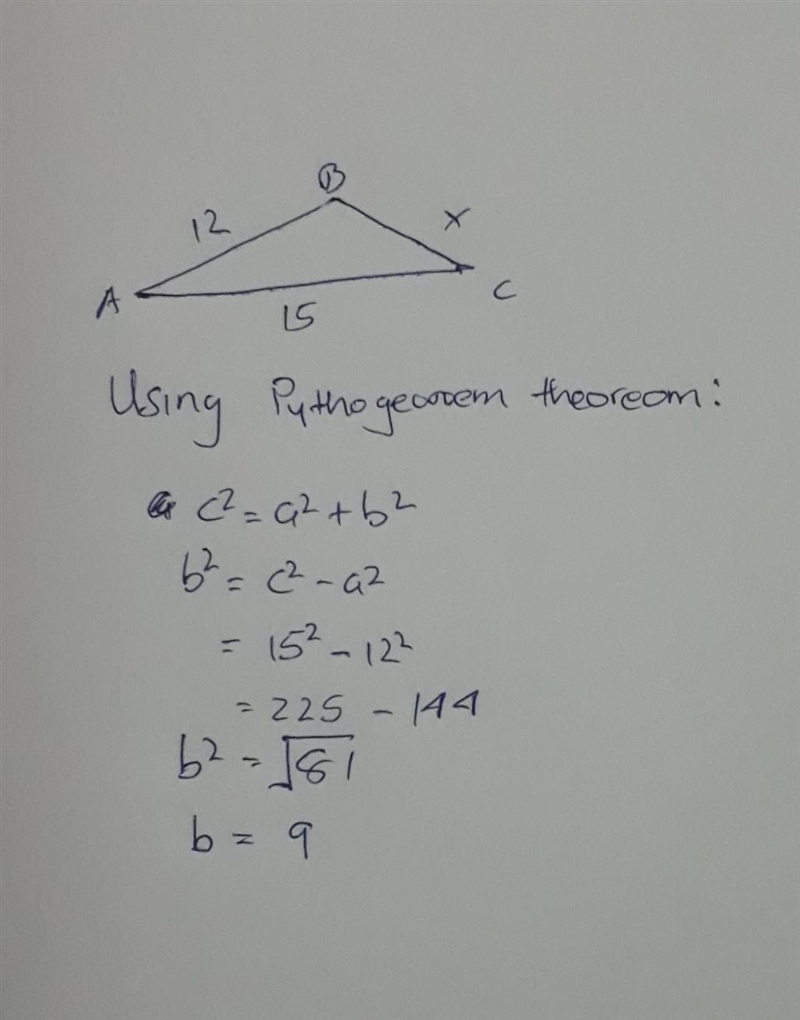 B
12
x
A
15
C
Using Pythogeorem theoreom:
c² = a² + b²
b² = c² - a²
= 15² - 12²
= 225 - 144
b² = √81
b = 9